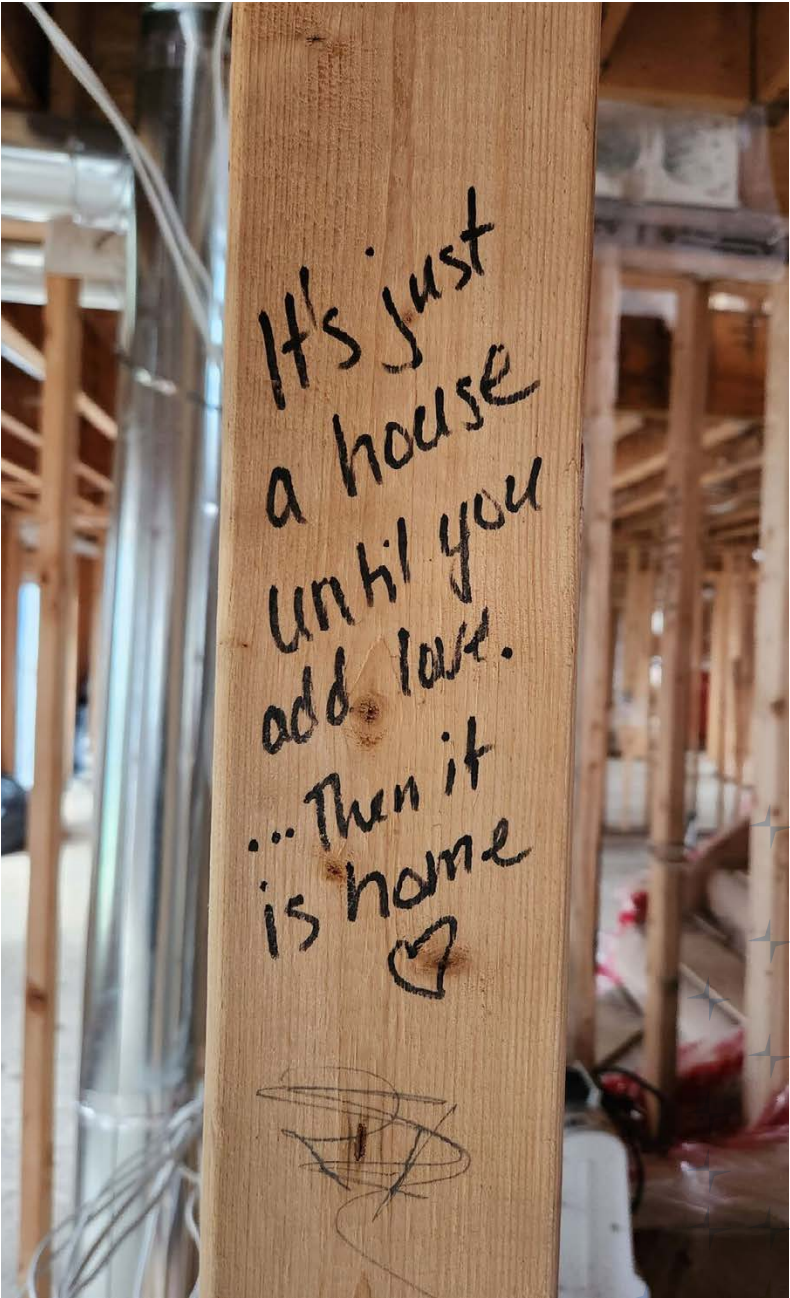 It's just
a house
until you
add love.
...Then it
is home